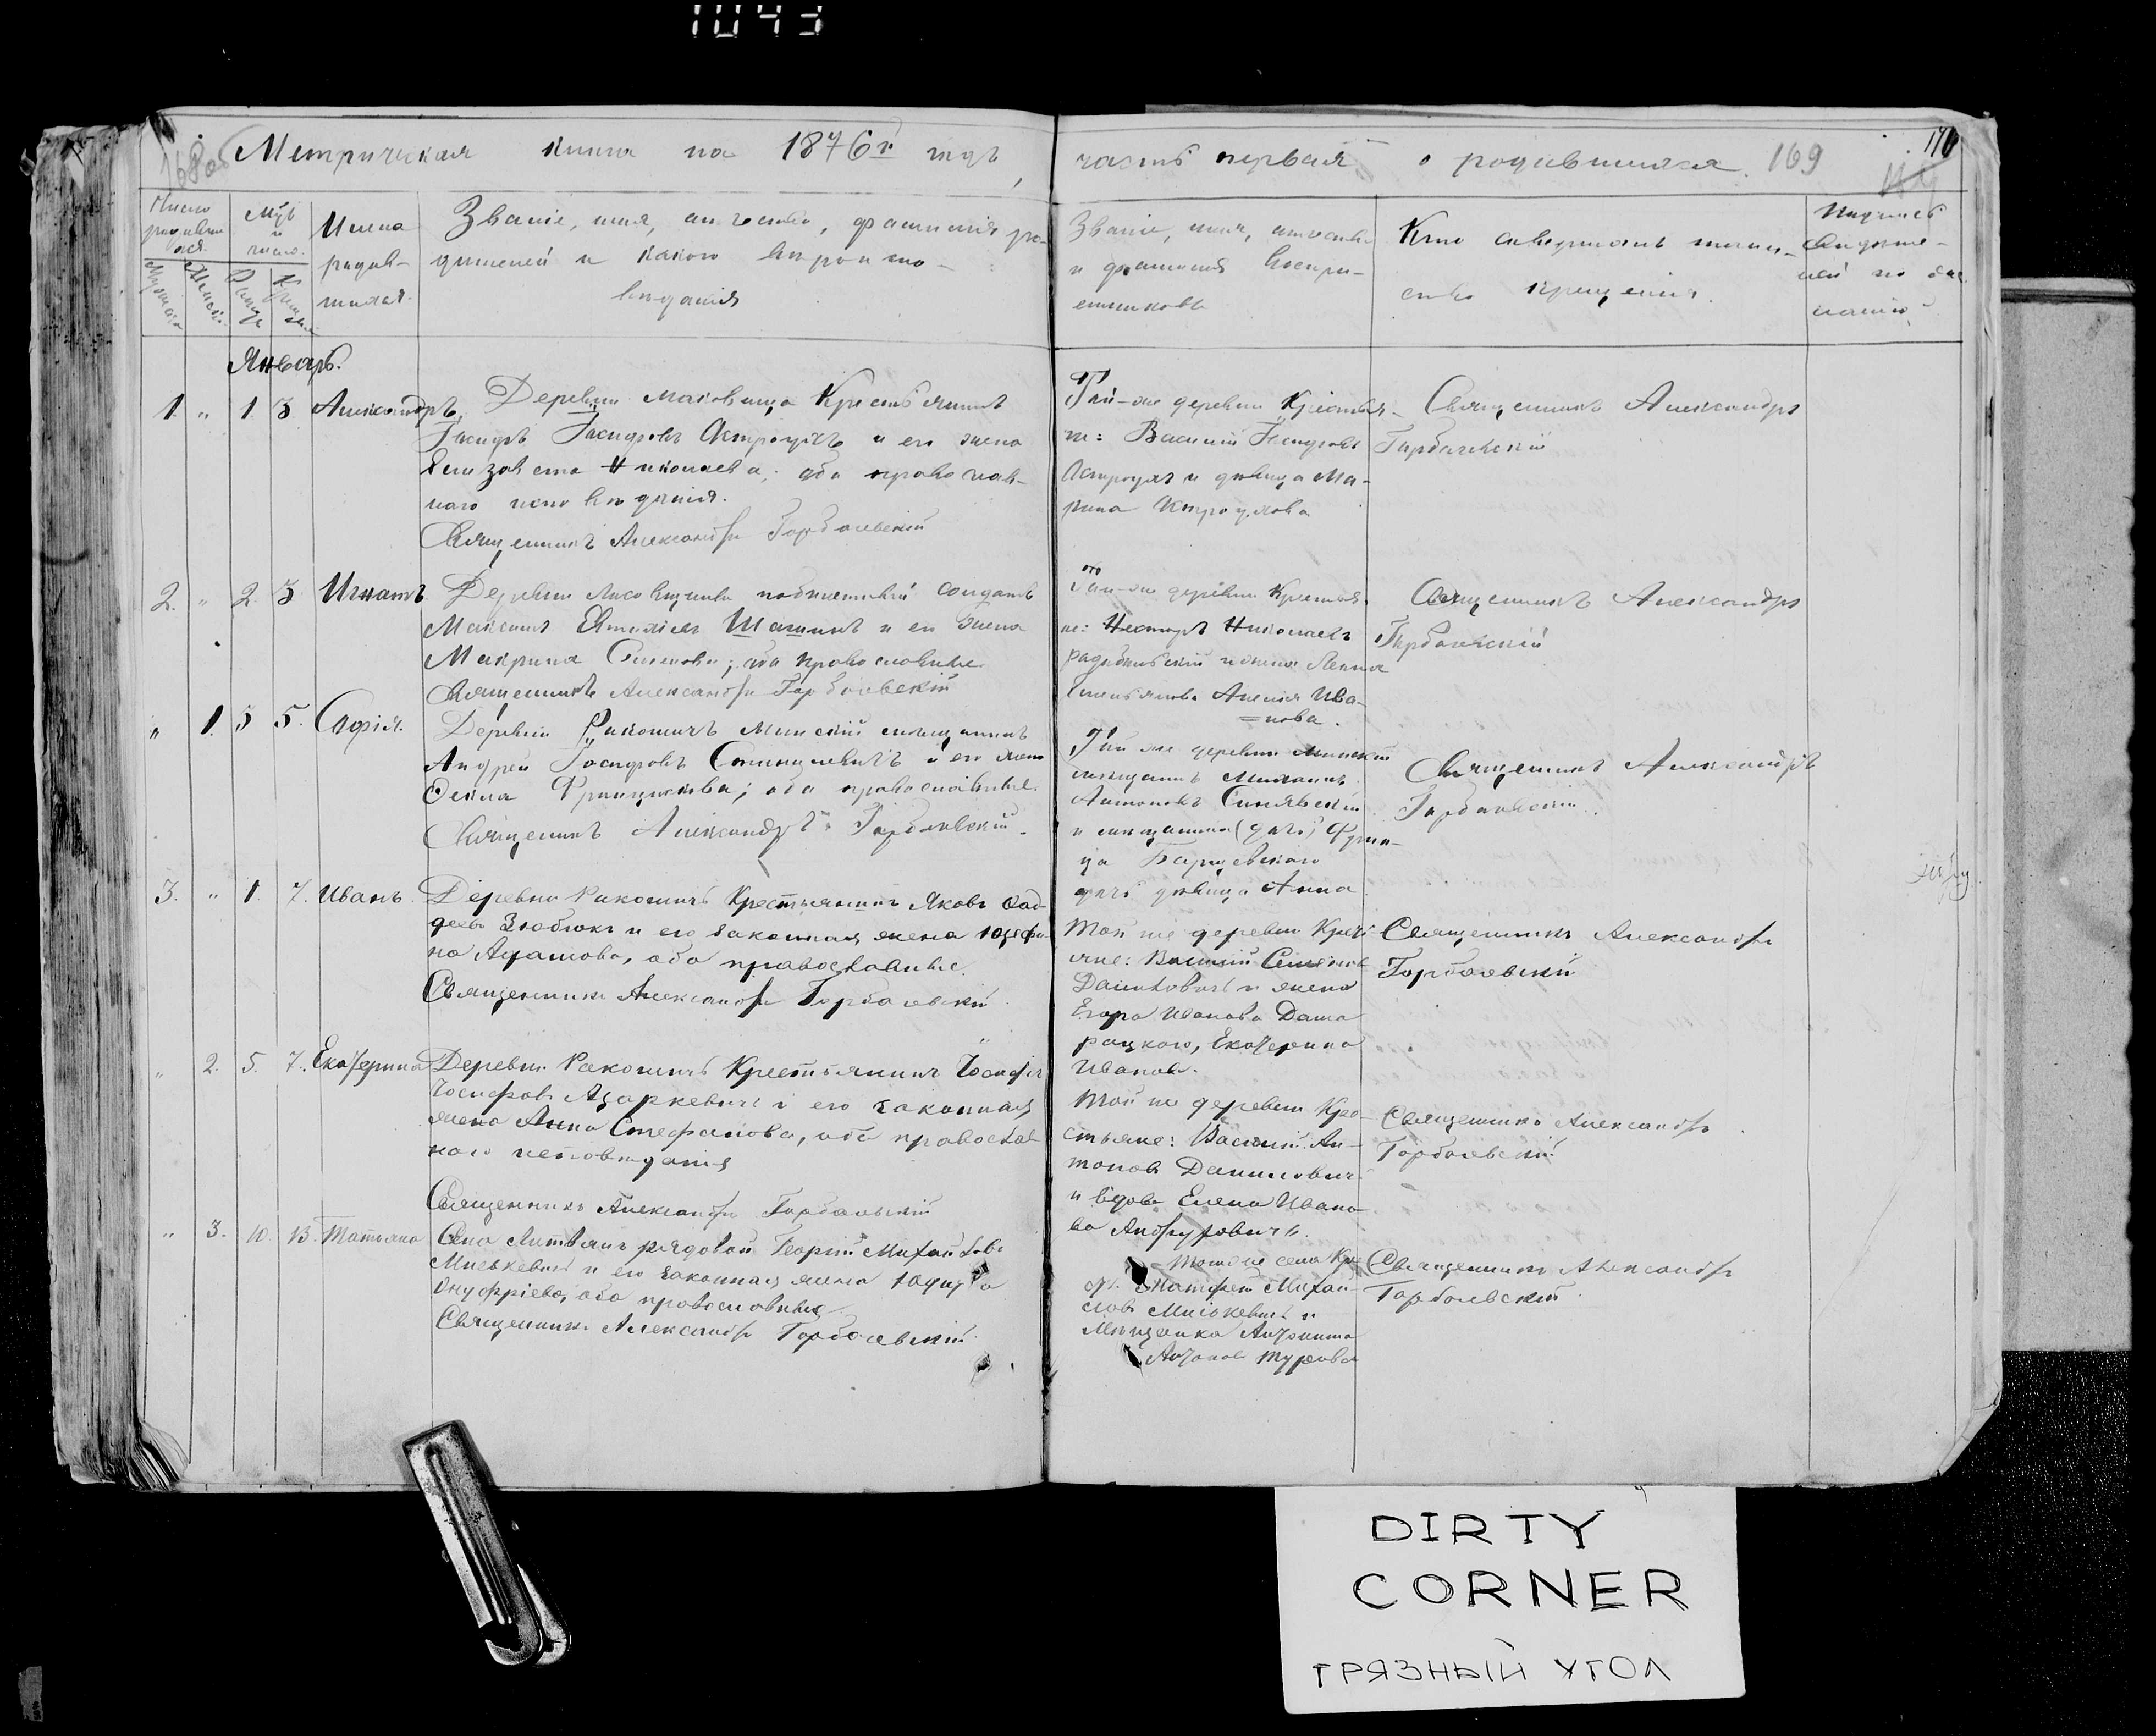 1043
168об Метрическая книга на 1876й годъ,
часть первая о родившихся. 169
170
Число родившихся.
Мужеска
Женска
Мѣс. и число.
Рожд.
Крещен.
Имена
родив-
шихся.
Званіе, имя, отчество, фамилія ро-
дителей и какого вѣроиспо-
вѣданія
Званіе, имя, отчество
и фамилія воспри-
емниковъ
Кто совершалъ таин-
ство крещенія.
Январь.
1. " 1 3 Александръ,
Деревни Крестьянинъ
Іосифъ Іосифовъ и его жена
Елизавета Николаева; оба православ-
наго исповѣданія.
Священникъ Александръ Горбачевскій
Той-же деревни Крестья-
не: Василій Іосифовъ
и дѣвица Ма-
рина
Священникъ Александръ
Горбачевскій
2. " 2. 3 Игнатъ
Деревни солдатъ
Максимъ и его жена
Макрина; оба православные
Священникъ Александръ Горбачевскій
Той-же деревни Крестья-
не: Несторъ Николаевъ
и жена
Ива-
=нова.
Священникъ Александръ
Горбачевскій
" 1. 5 5. Софія.
Деревни Ракошичъ Минскій мѣщанинъ
Андрей Іосифовъ и его жена
Ѳекла Францискова; оба православные.
Священникъ Александръ Горбачевскій.
Той же деревни Минскій
мѣщанинъ Михаилъ
Антоновъ Синявскій
и мѣщанина (дочь) Фран-
ца
дочь дѣвица Анна
Священникъ Александръ
Горбачевскій
3. " 1. 7. Иванъ.
Деревни Ракошичъ Крестьянинъ Яковъ Ѳад-
деевъ Зюбюкъ и его законная жена Юзефи-
на Адамова, оба православные.
Священникъ Александръ Горбачевскій
Той же деревни Кресть-
яне: Василій Семеновъ
и жена
Егора Иванова Дама-
рацкого, Екатерина
Иванова.
Священникъ Александръ
Горбачевскій
" 2. 5. 7. Екатерина
Деревни Ракошичъ Крестьянинъ Іосифъ
Іосифовъ Азаркевичъ и его законная
жена Анна Стефанова, оба православ-
наго исповѣданія
Священникъ Александръ Горбачевскій
Той же деревни Кре-
стьяне: Василій Ан-
тоновъ Даниловичъ
и вдова Елена Ивано-
ва
Священникъ Александръ
Горбачевскій
" 3. 10. 13. Татьяна
Села Литвянъ рядовой Георгій Михайловъ
Миськевичъ и его законная жена
Онуфріева, оба православные
Священникъ Александръ Горбачевскій.
Того же села Кре-
ст. Матфей Михай-
ловъ Миськевичъ и
Мѣщанка Антонина
Антонова Турова
Священникъ Александръ
Горбачевскій
DIRTY
CORNER
ГРЯЗНЫЙ УГОЛ